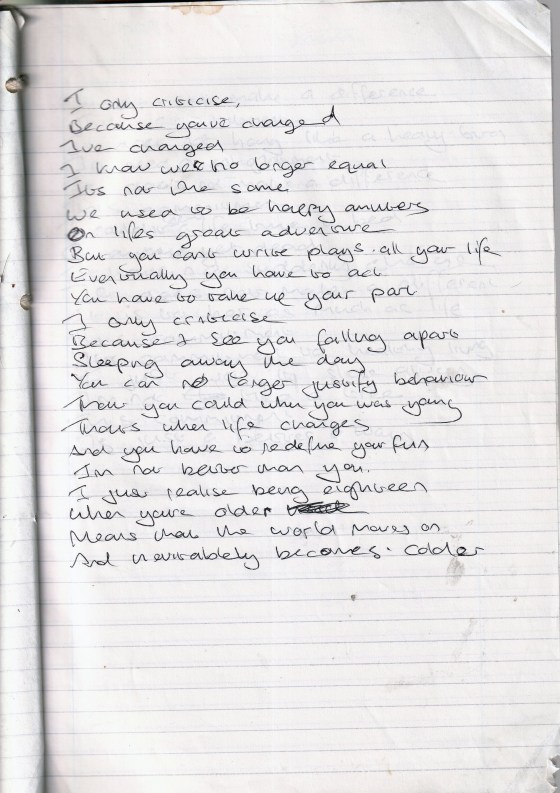 I only criticise,
Because you've changed
I've changed
I know we're no longer equal
It's not the same
We used to be happy amblers
On lifes great adventure
But you can't write plays all your life
Eventually you have to act
You have to take up your part
I only criticise
Because I see you falling apart
Sleeping away the day
You can no longer justify behaviour
That you could when you was young
That's when life changes
And you have to redefine your fun
I'm not better than you.
I just realise being eighteen
When you're older
Means that the world moves on
And inevitably becomes colder